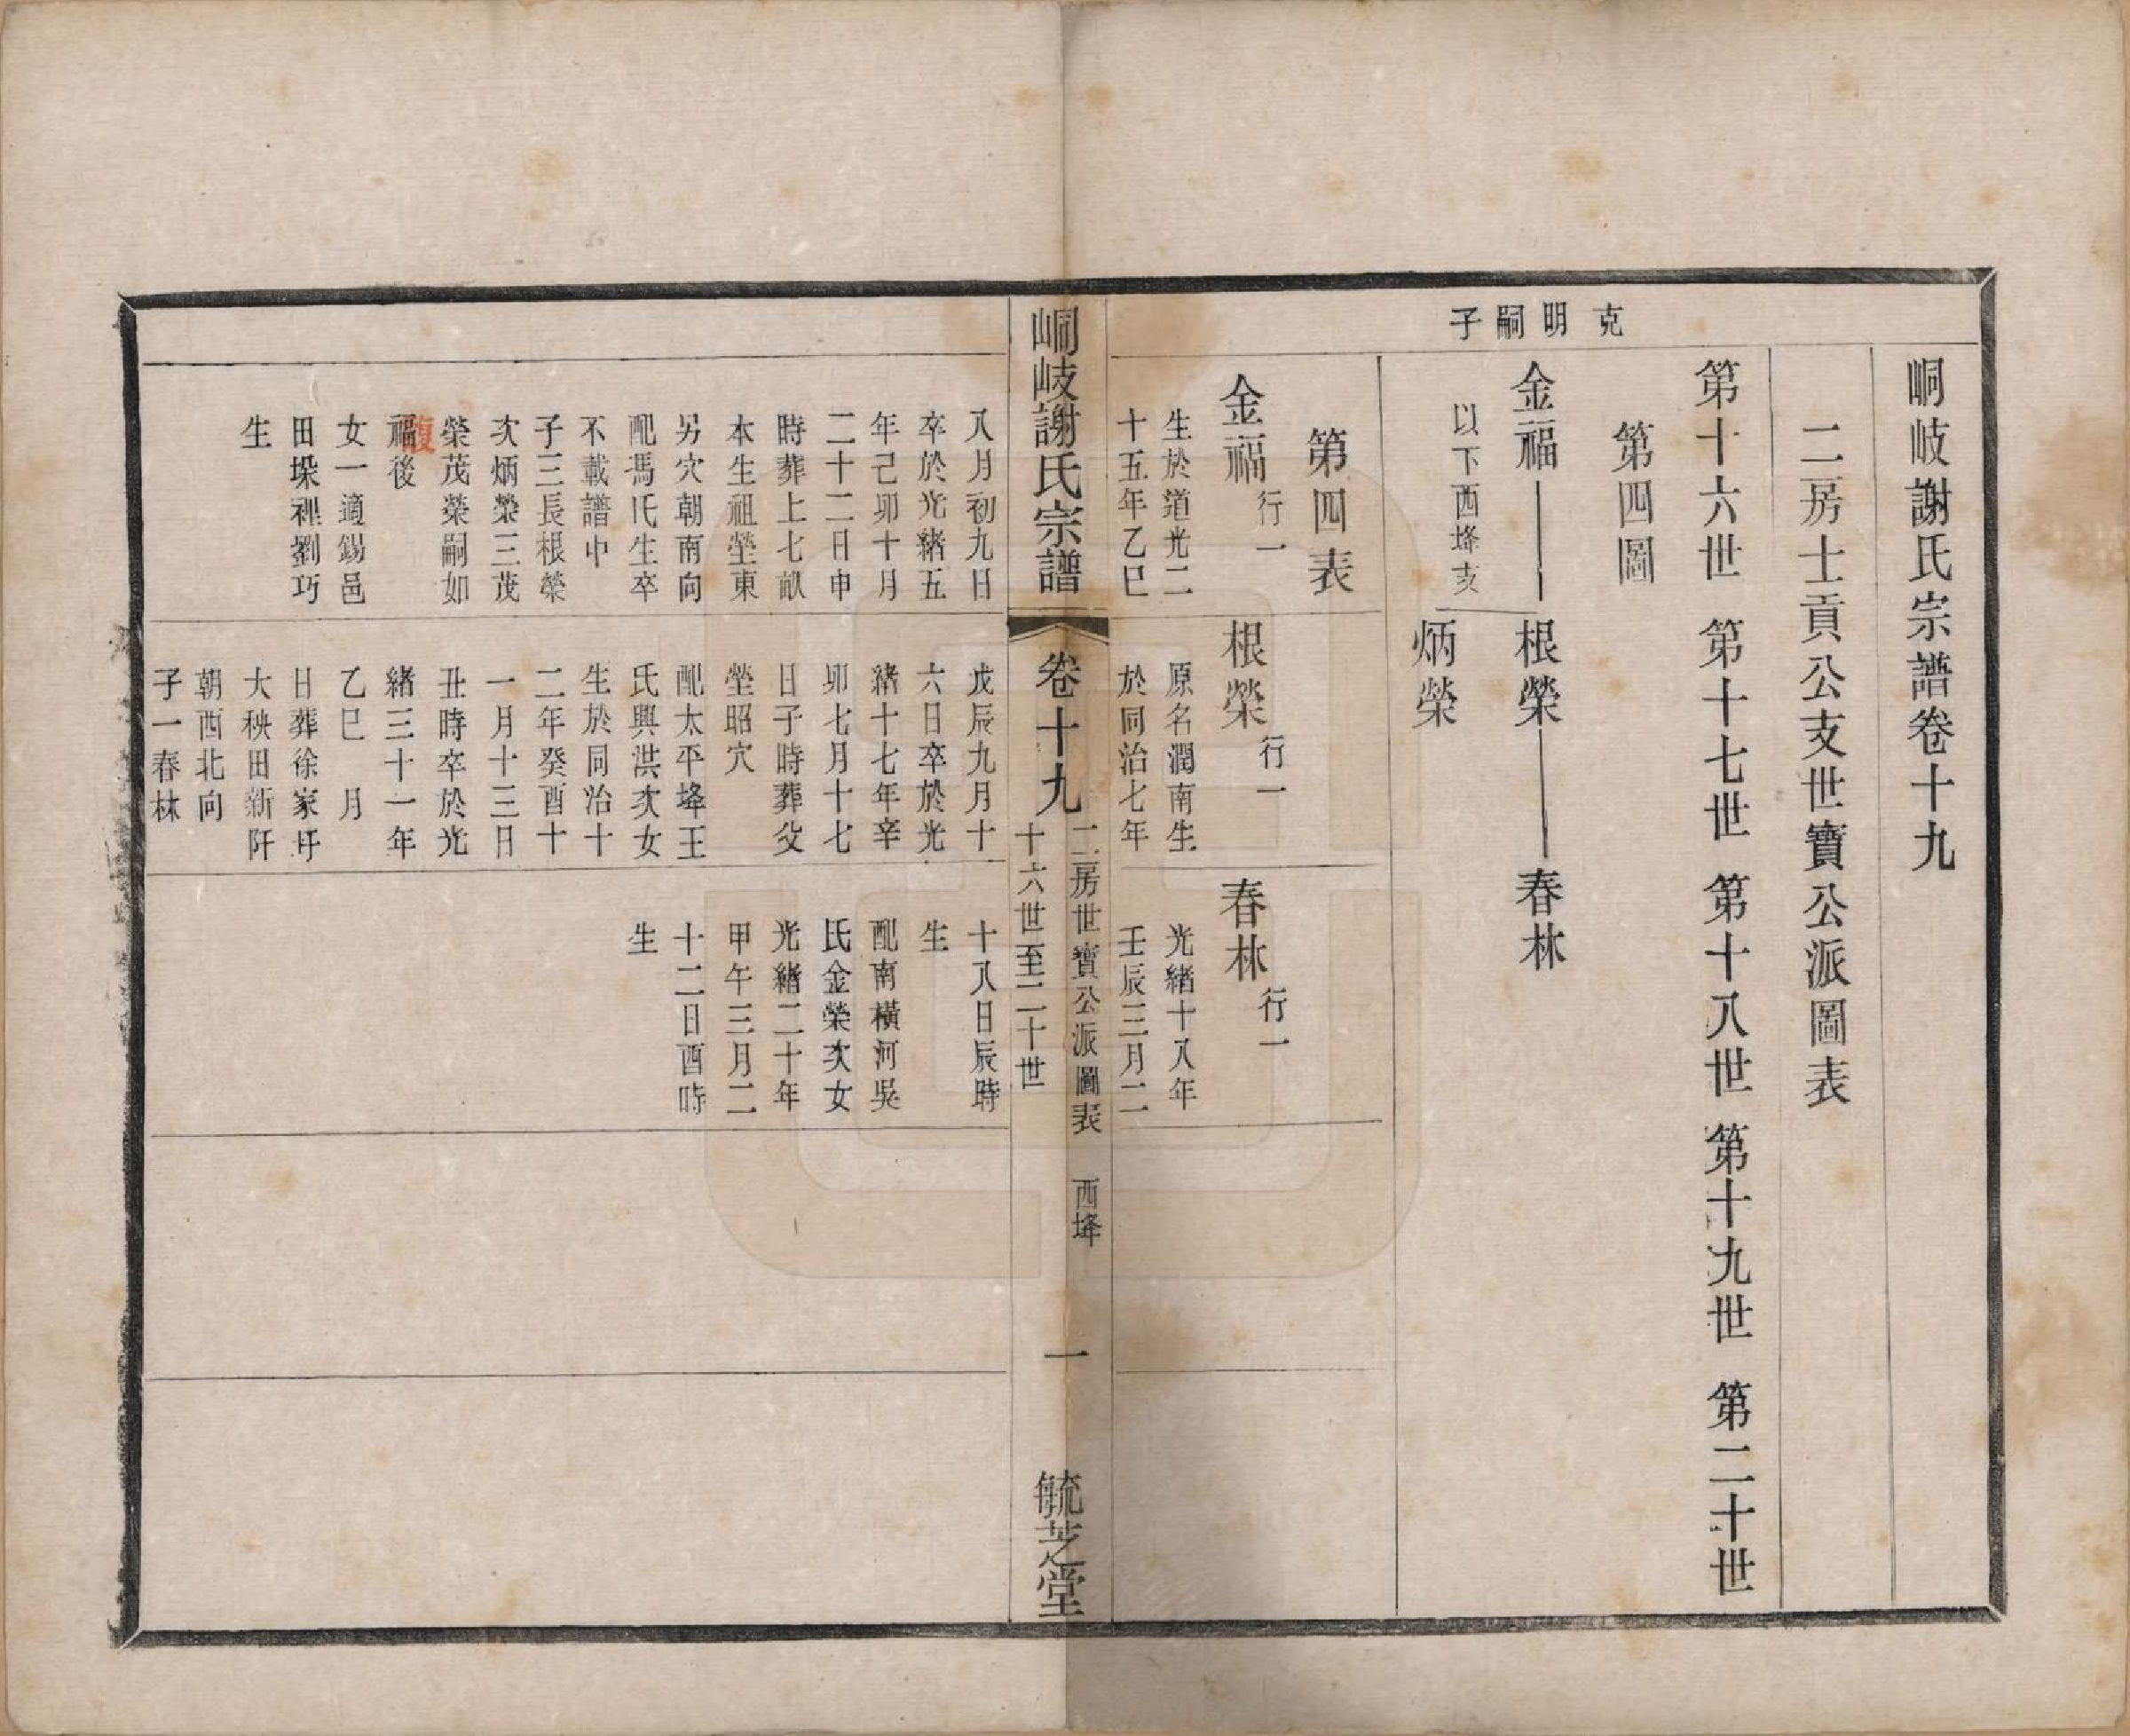 峒岐謝氏宗譜卷十九
二房士貢公支世寶公派圖表
第十六世 第十七世 第十八世 第十九世 第二十世
第四圖
克明嗣子
金福 根榮 春林
以下西垰亥
炳榮
第四表
金福 行一
生於道光二
十五年乙巳
八月初九日
卒於光緒五
年己卯十月
二十二日申
時葬上七畝
本生祖塋東
另穴朝南向
配馮氏生卒
不載譜中
子三長根榮
次炳榮三茂
榮茂榮嗣如
福後
復
女一適錫邑
田垛裡劉巧
生
根榮 行一
原名潤南生
於同治七年
戊辰九月十
六日卒於光
緒十七年辛
卯七月十七
日子時葬父
塋昭穴
配太平垰王
氏興洪次女
生於同治十
二年癸酉十
一月十三日
丑時卒於光
緒三十一年
乙巳 月
日葬徐家圩
大秧田新阡
朝酉北向
子一春林
春林 行一
光緒十八年
壬辰三月二
十八日辰時
生
配南橫河吳
氏金榮次女
光緒二十年
甲午三月二
十二日酉時
生
峒岐謝氏宗譜
卷十九
二房世寶公派圖表 西垰
十六世至二十世
一
毓芝堂